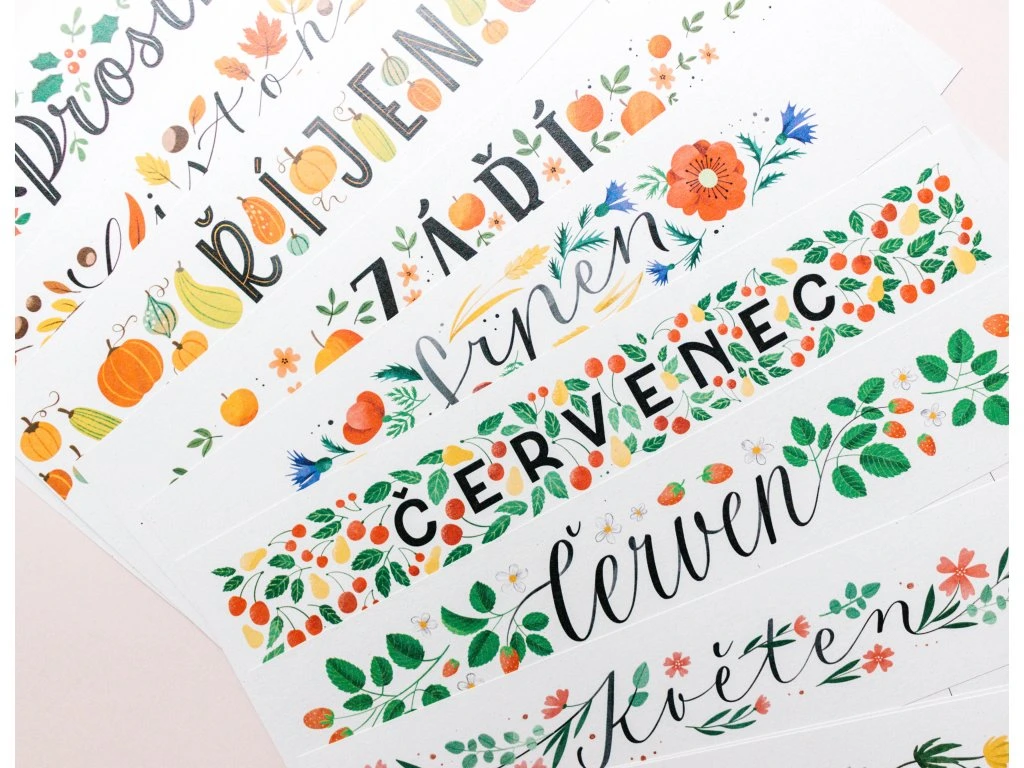 Prosi
ŘÍJEN
ZÁŘÍ
Srpen
ČERVENEC
Červen
Květen